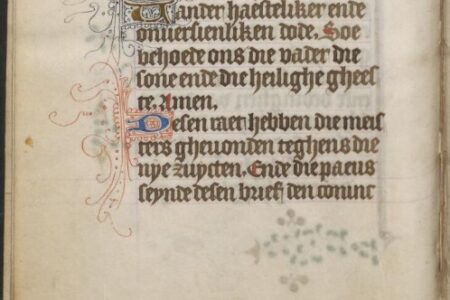 Vander haesteliker ende
onuersienliken dode. Soe
behoede ons die vader die
sone ende die heilighe ghees
te. Amen.
Desen raet hebben die meis
ters gheuonden teghens die
nye zuycten. Ende die paeus
seynde desen brief den coninc